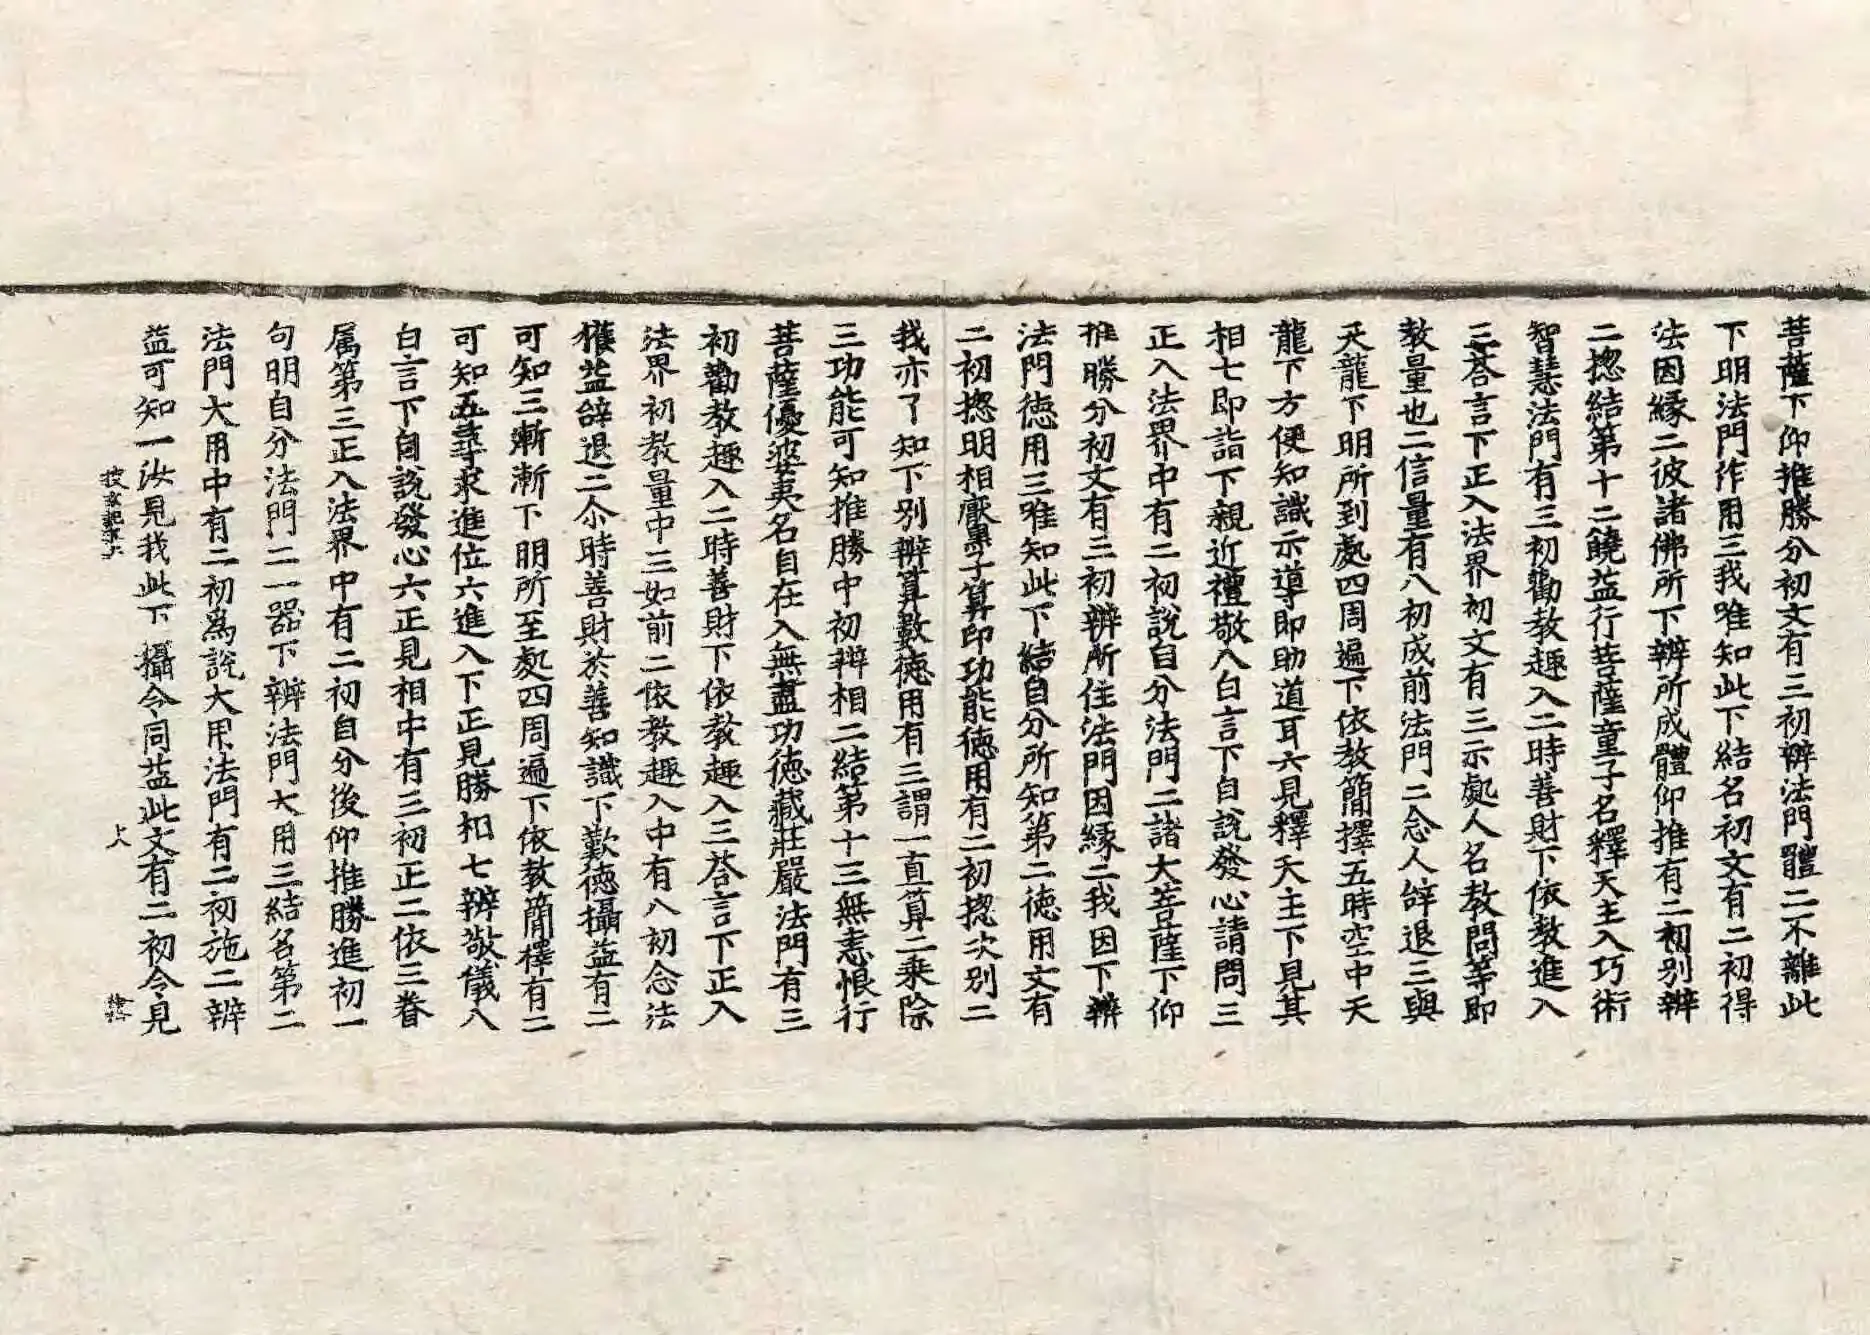 菩薩下仰推勝分初文有三初辨法門體二不離此
下明法門作用三我唯知此下結名初文有二初得
法因緣二彼諸佛所下辨所成體仰推有二初別辨
二揔結第十二饒益行菩薩童子名釋天主入巧術
智慧法門有三初勸教趣入二時善財下依教進入
三荅言下正入法界初文有三示處人名教問等即
教量也二信量有八初成前法門二念人辞退三與
天龍下明所到處四周遍下依教簡擇五時空中天
龍下方便知識示導即助道耳六見釋天主下見其
相七即詣下親近禮敬八白言下自說發心請問三
正入法界中有二初說自分法門二諸大菩薩下仰
推勝分初文有三初辨所住法門因緣二我因下辨
法門徳用三唯知此下結自分所知第二徳用文有
二初揔明相厭墨子算印功能徳用有二初揔次別二
我亦了知下別辨算數徳用有三謂一直算二乗除
三功能可知推勝中初辨相二結第十三無恚恨行
菩薩優婆夷名自在入無盡功徳藏莊嚴法門有三
初勸教趣入二時善財下依教趣入三荅言下正入
法界初教量中三如前二依教趣入中有八初念法
獲益辞退二尒時善財於善知識下歎徳攝益有二
可知三漸漸下明所至處四周遍下依教簡擇有二
可知五尋求進位六進入下正見勝相七辨敬儀八
白言下自說發心六正見相中有三初正二依三眷
属第三正入法界中有二初自分後仰推勝進初一
句明自分法門二一器下辨法門大用三結名第二
法門大用中有二初為說大用法門有二初施二辨
益可知一汝見我此下攝令同益此文有二初令見